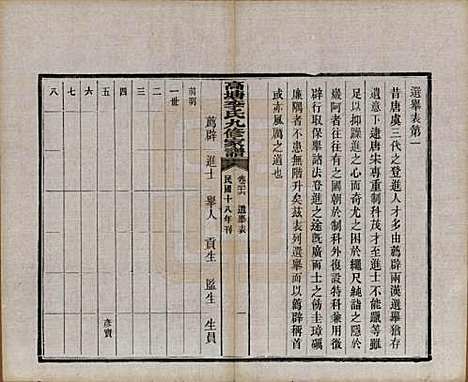 選舉表第一
昔唐虞三代之登進人才多由薦辟兩漢選舉猶存
遺意下逮唐宋專重制科茂才進士不能躐等雖
足以抑躁進之心而奇尤之士困於繩尺純誥之
巖阿者往往有之國朝於制科外復設特科兼用徵
辟孝廉方正保舉諸法登進之途旣廣而士之懷圭璋礪
廉隅者不患無階升矣茲表列選舉而以薦辟稱首
或亦風厲之道也
高塘李氏九修家譜
卷之六 選舉表
民國十八年刊
薦辟 進士 舉人 貢生 監生 生員
前明
一世
二
三
四
五 彥寶
六
七
八